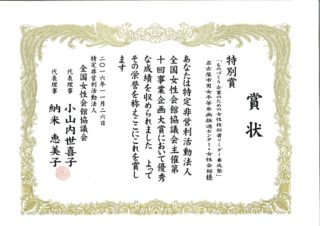 賞状
特別賞
「ものづくり企業のための女性技術者リーダー養成塾」
名古屋市男女平等参画推進センター・女性会館様
あなたは特定非営利活動法人
全国女性会館協議会主催第
十回事業企画大賞において優秀
な成績を収められました よって
その栄誉を称えここにこれを賞し
ます
二〇一六年一一月二六日
特定非営利活動法人
全国女性会館協議会
代表理事 小山内世喜子
代表理事 納米恵美子